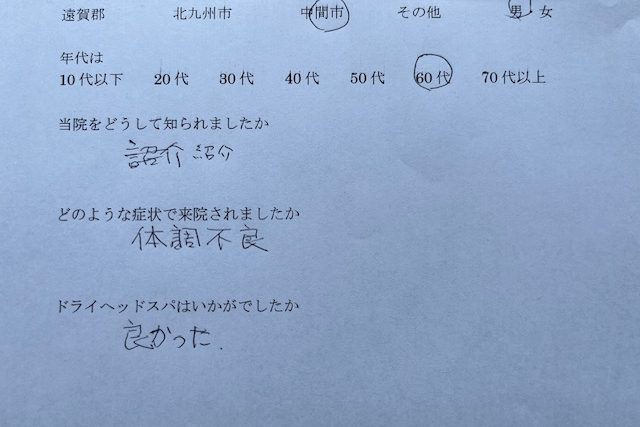 遠賀郡 北九州市 中間市 その他 男・女
年代は
10代以下 20代 30代 40代 50代 60代 70代以上
当院をどうして知られましたか
紹介
どのような症状で来院されましたか
体調不良
ドライヘッドスパはいかがでしたか
良かった.